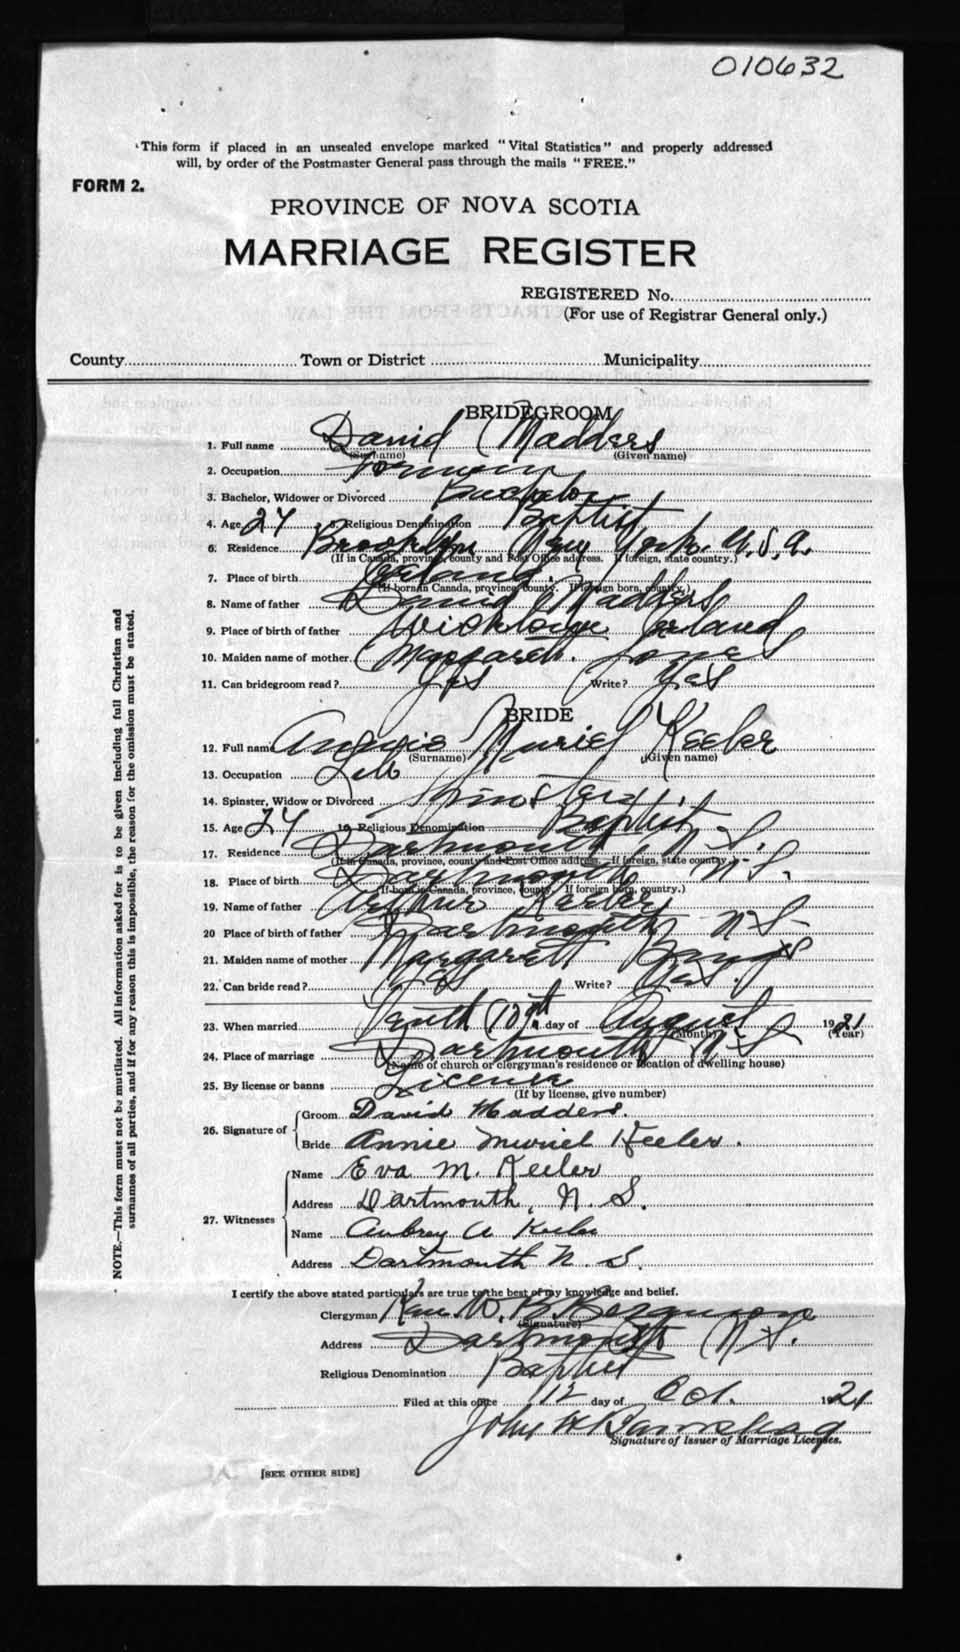 010632
This form if placed in an unsealed envelope marked "Vital Statistics" and properly addressed
will, by order of the Postmaster General pass through the mails "FREE."
FORM 2.
PROVINCE OF NOVA SCOTIA
MARRIAGE REGISTER
REGISTERED No.
(For use of Registrar General only.)
County Town or District Municipality
BRIDEGROOM
1. Full name David Madders
(Surname) (Given name)
2. Occupation Forman
3. Bachelor, Widower or Divorced Bachelor
4. Age 24 5. Religious Denomination Baptist
6. Residence Brooklyn New York. U.S.A.
(If in Canada, province, county and Post Office address. If foreign, state country.)
7. Place of birth
(If born in Canada, province, county. If foreign born, country.)
8. Name of father David Madders
9. Place of birth of father Wicklow Ireland
10. Maiden name of mother Margaret. Jones
11. Can bridegroom read? Yes Write? Yes
BRIDE
12. Full name Annie Muriel Keeler
(Surname) (Given name)
13. Occupation
14. Spinster, Widow or Divorced Spinster.
15. Age 24 16. Religious Denomination Baptist
17. Residence Dartmouth N.S.
(If in Canada, province, county and Post Office address. If foreign, state country.)
18. Place of birth Dartmouth N.S.
(If born in Canada, province, county. If foreign born, country.)
19. Name of father Arthur Keeler
20 Place of birth of father Dartmouth N S
21. Maiden name of mother Margarett
22. Can bride read? Yes Write? Yes.
23. When married Tenth (10th day of August 1921
(Month) (Year)
24. Place of marriage Dartmouth N.S
(Name of church or clergyman's residence or location of dwelling house)
25. By license or banns License
(If by license, give number)
26. Signature of Groom David Madders.
Bride Annie Muriel Keeler.
27. Witnesses Name Eva M. Keeler
Address Dartmouth, N. S.
Name Aubrey A Keeler
Address Dartmouth N. S.
I certify the above stated particulars are true to the best of my knowledge and belief.
Clergyman W. B. Bezanson
(Signature)
Address Dartmouth N.S.
Religious Denomination Baptist
Filed at this office 12 day of Oct. 1921
John W
Signature of Issuer of Marriage Licenses.
[SEE OTHER SIDE]
NOTE.—This form must not be mutilated. All information asked for is to be given including full Christian and
surnames of all parties, and if for any reason this is impossible, the reason for the omission must be stated.